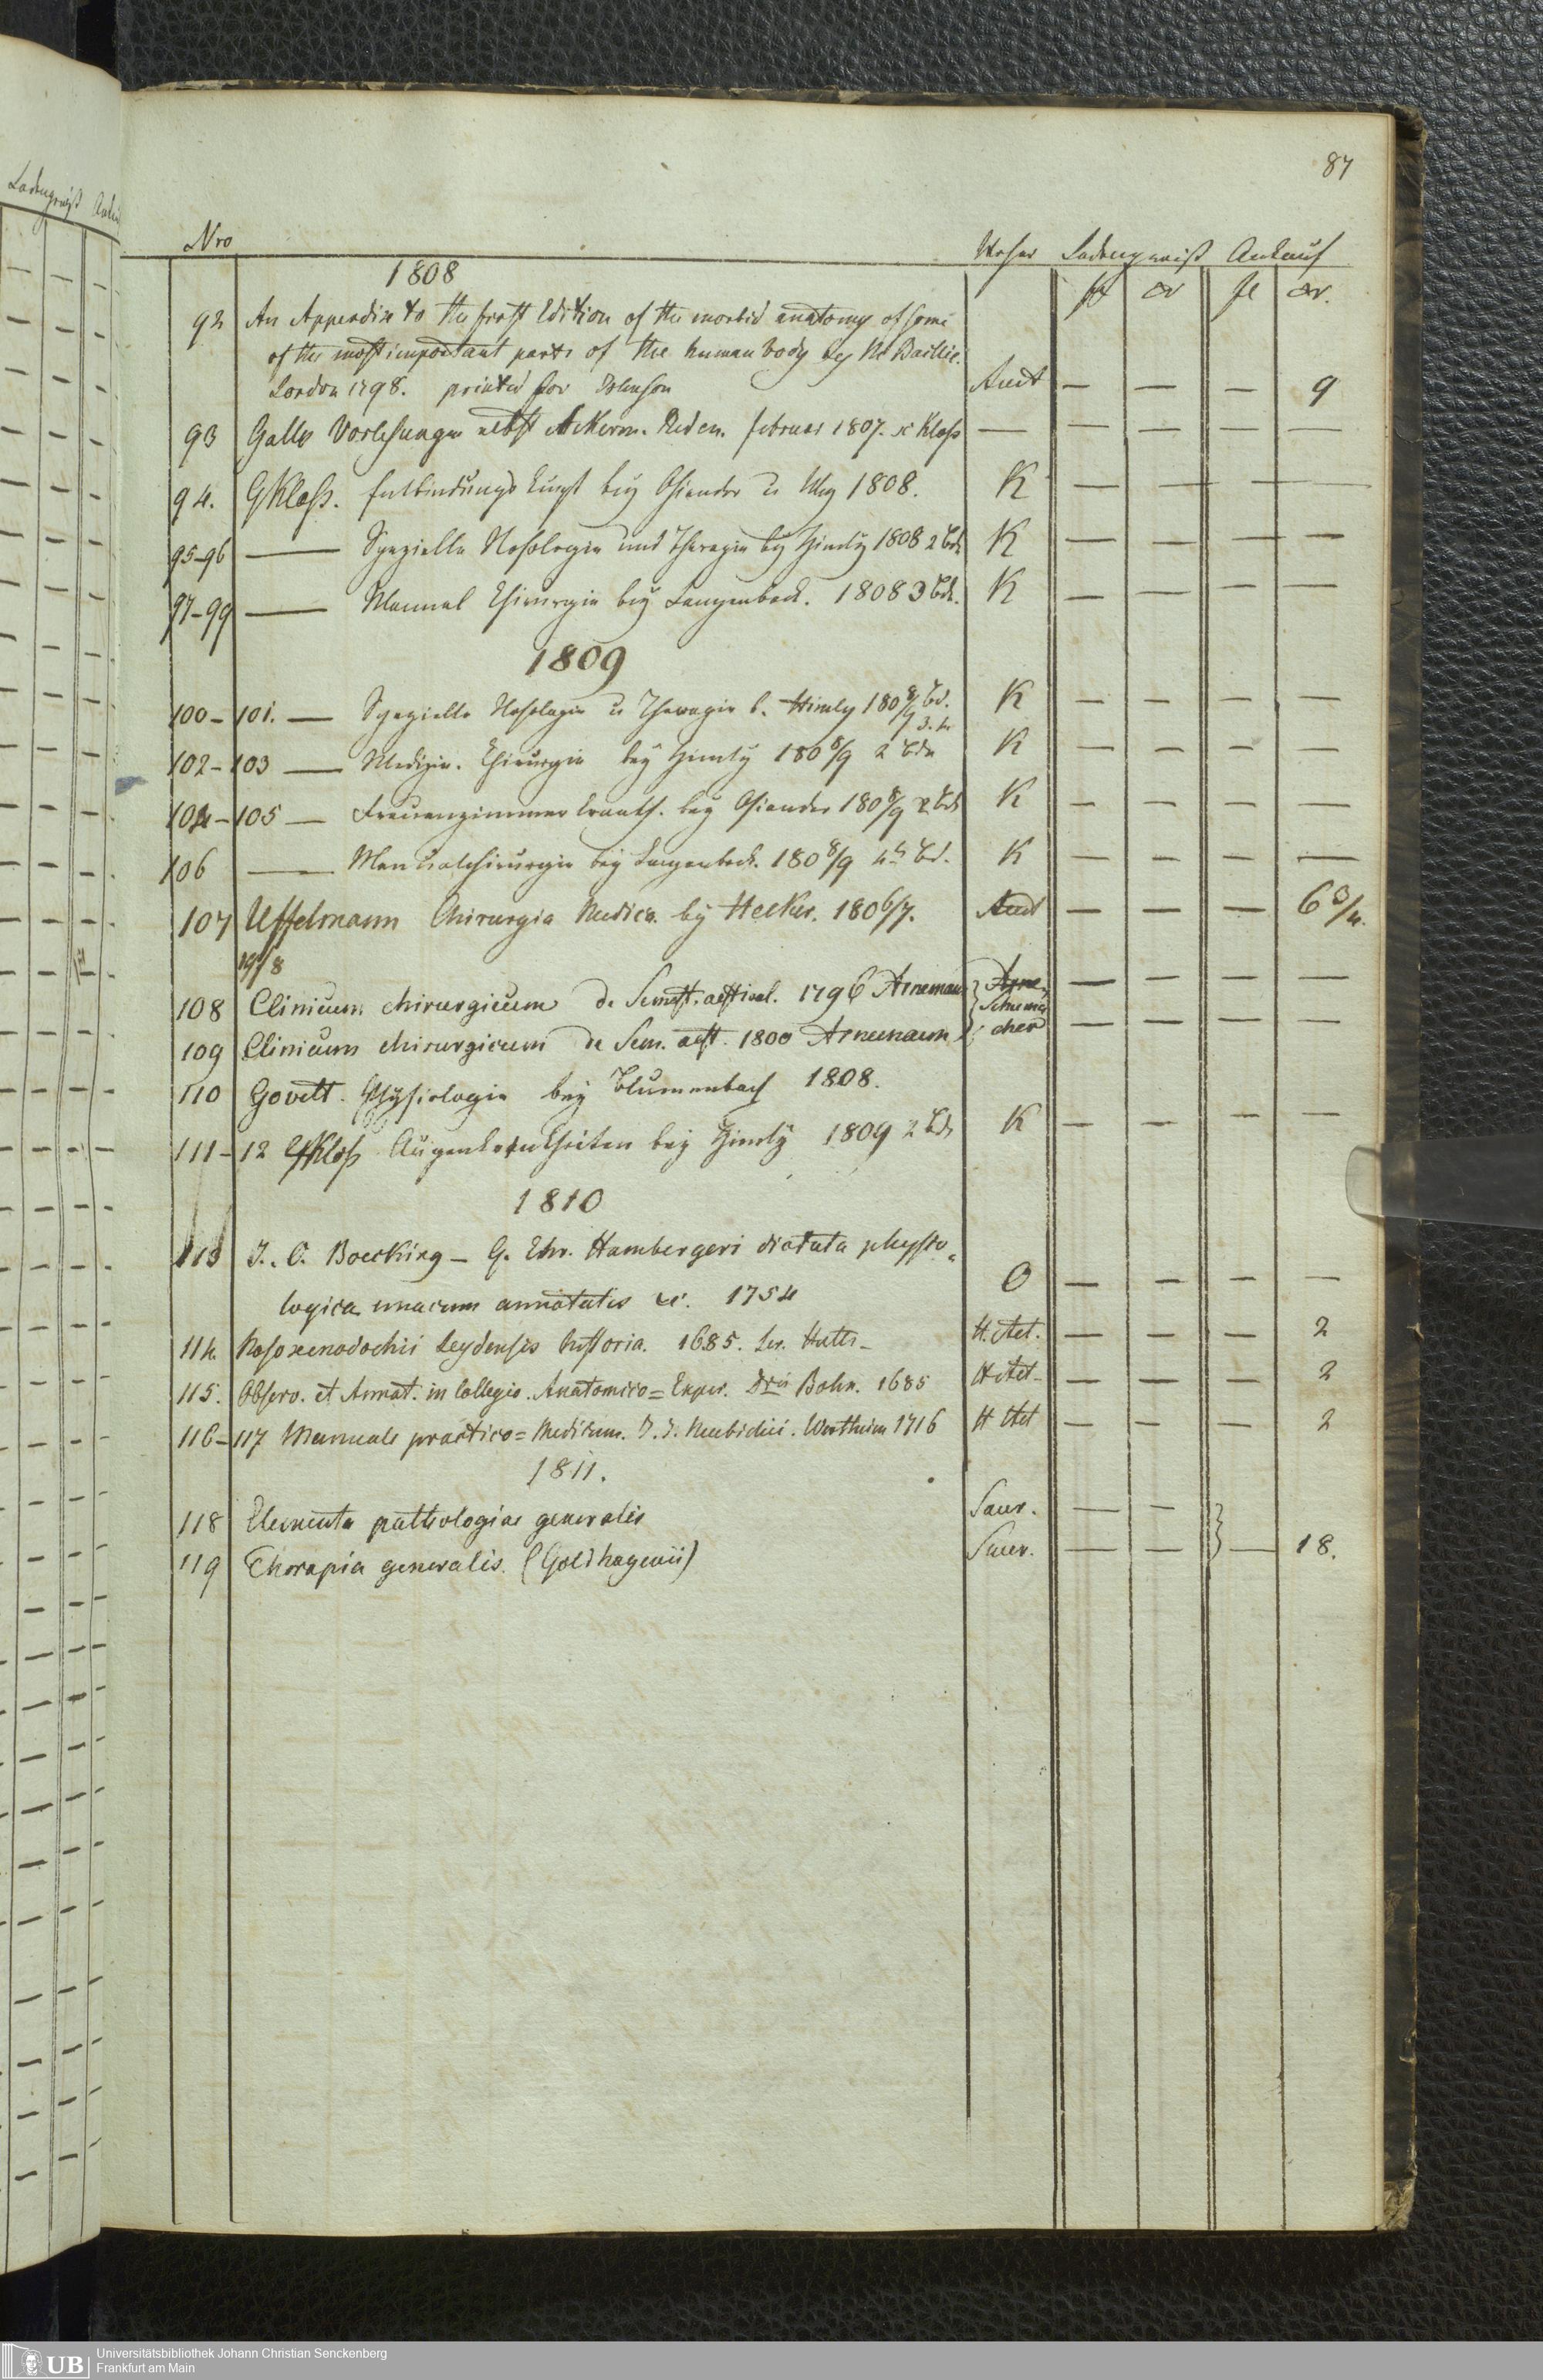 87
Nro Woher Ladenpreiß Ankauf
1808
92 An Appendix to the first Edition of the morbid anatomy of some
of the most important parts of the human body by M. Baillie.
London 1798. printed for Johnson Auct — — — 9
93 Galls Vorlesungen nebst Ackerm. Reden. Februar 1807. Kloß — — — — —
94. GKloß. Entbindungskunst bey Osiander 1808. K — — — —
95-96 — Spezielle Nosologie und Therapie by Himly 1808 2 Bde K — — — —
97-99 — Manual Chirurgie bey Langenbeck. 1808 3 Bde. K — — — —
1809
100-101. — Spezielle Nosologie u Therapie b. Himly 1808/9 Bd. 3.4 K — — — —
102-103 — Medizin. Chirurgie bey Himly 1808/9 2 Bde K — — — —
104-105 — Frauenzimmer krankh. bey Osiander 1808/9 2 Bde K — — — —
106 — Manualchirurgie bey Langenbeck. 1808/9 4r Bd. K — — — —
107 Uffelmann Chirurgia Medica by Hecker. 1806/7. Auct — — — 6 3/4.
108 Clinicum chirurgicum de Semest. aestival. 1796 Arneman Schuma — — — —
109 Clinicum chirurgicum de Sem. aest. 1800 Arnemann cher — — — —
110 Govett. Physiologie bey Blumenbach 1808.
111-12 GKloß Augenkrankheiten bey Himly 1809 2 Bde K — — — —
1810
113 J. C. Boecking — G. Ehr. Hambergeri dictata physio=
logica unacum annotatis 1754 O — — — —
114. Nosoxenodochii Leydensis historia. 1685. H. Aet. — — — 2
115. Observ. et Annot. in Collegio Anatomico=Exper. Dris Bohn. 1685 H Aet — — — 2
116-117 Manuale practico=Medicum. Wertheim 1716 H Aet — — — 2
1811.
118 Elementa pathologiae generalis Sauer. — —
119 Therapia generalis. (Goldhagenii) Sauer. — — — 18.
Universitätsbibliothek Johann Christian Senckenberg
Frankfurt am Main
UB